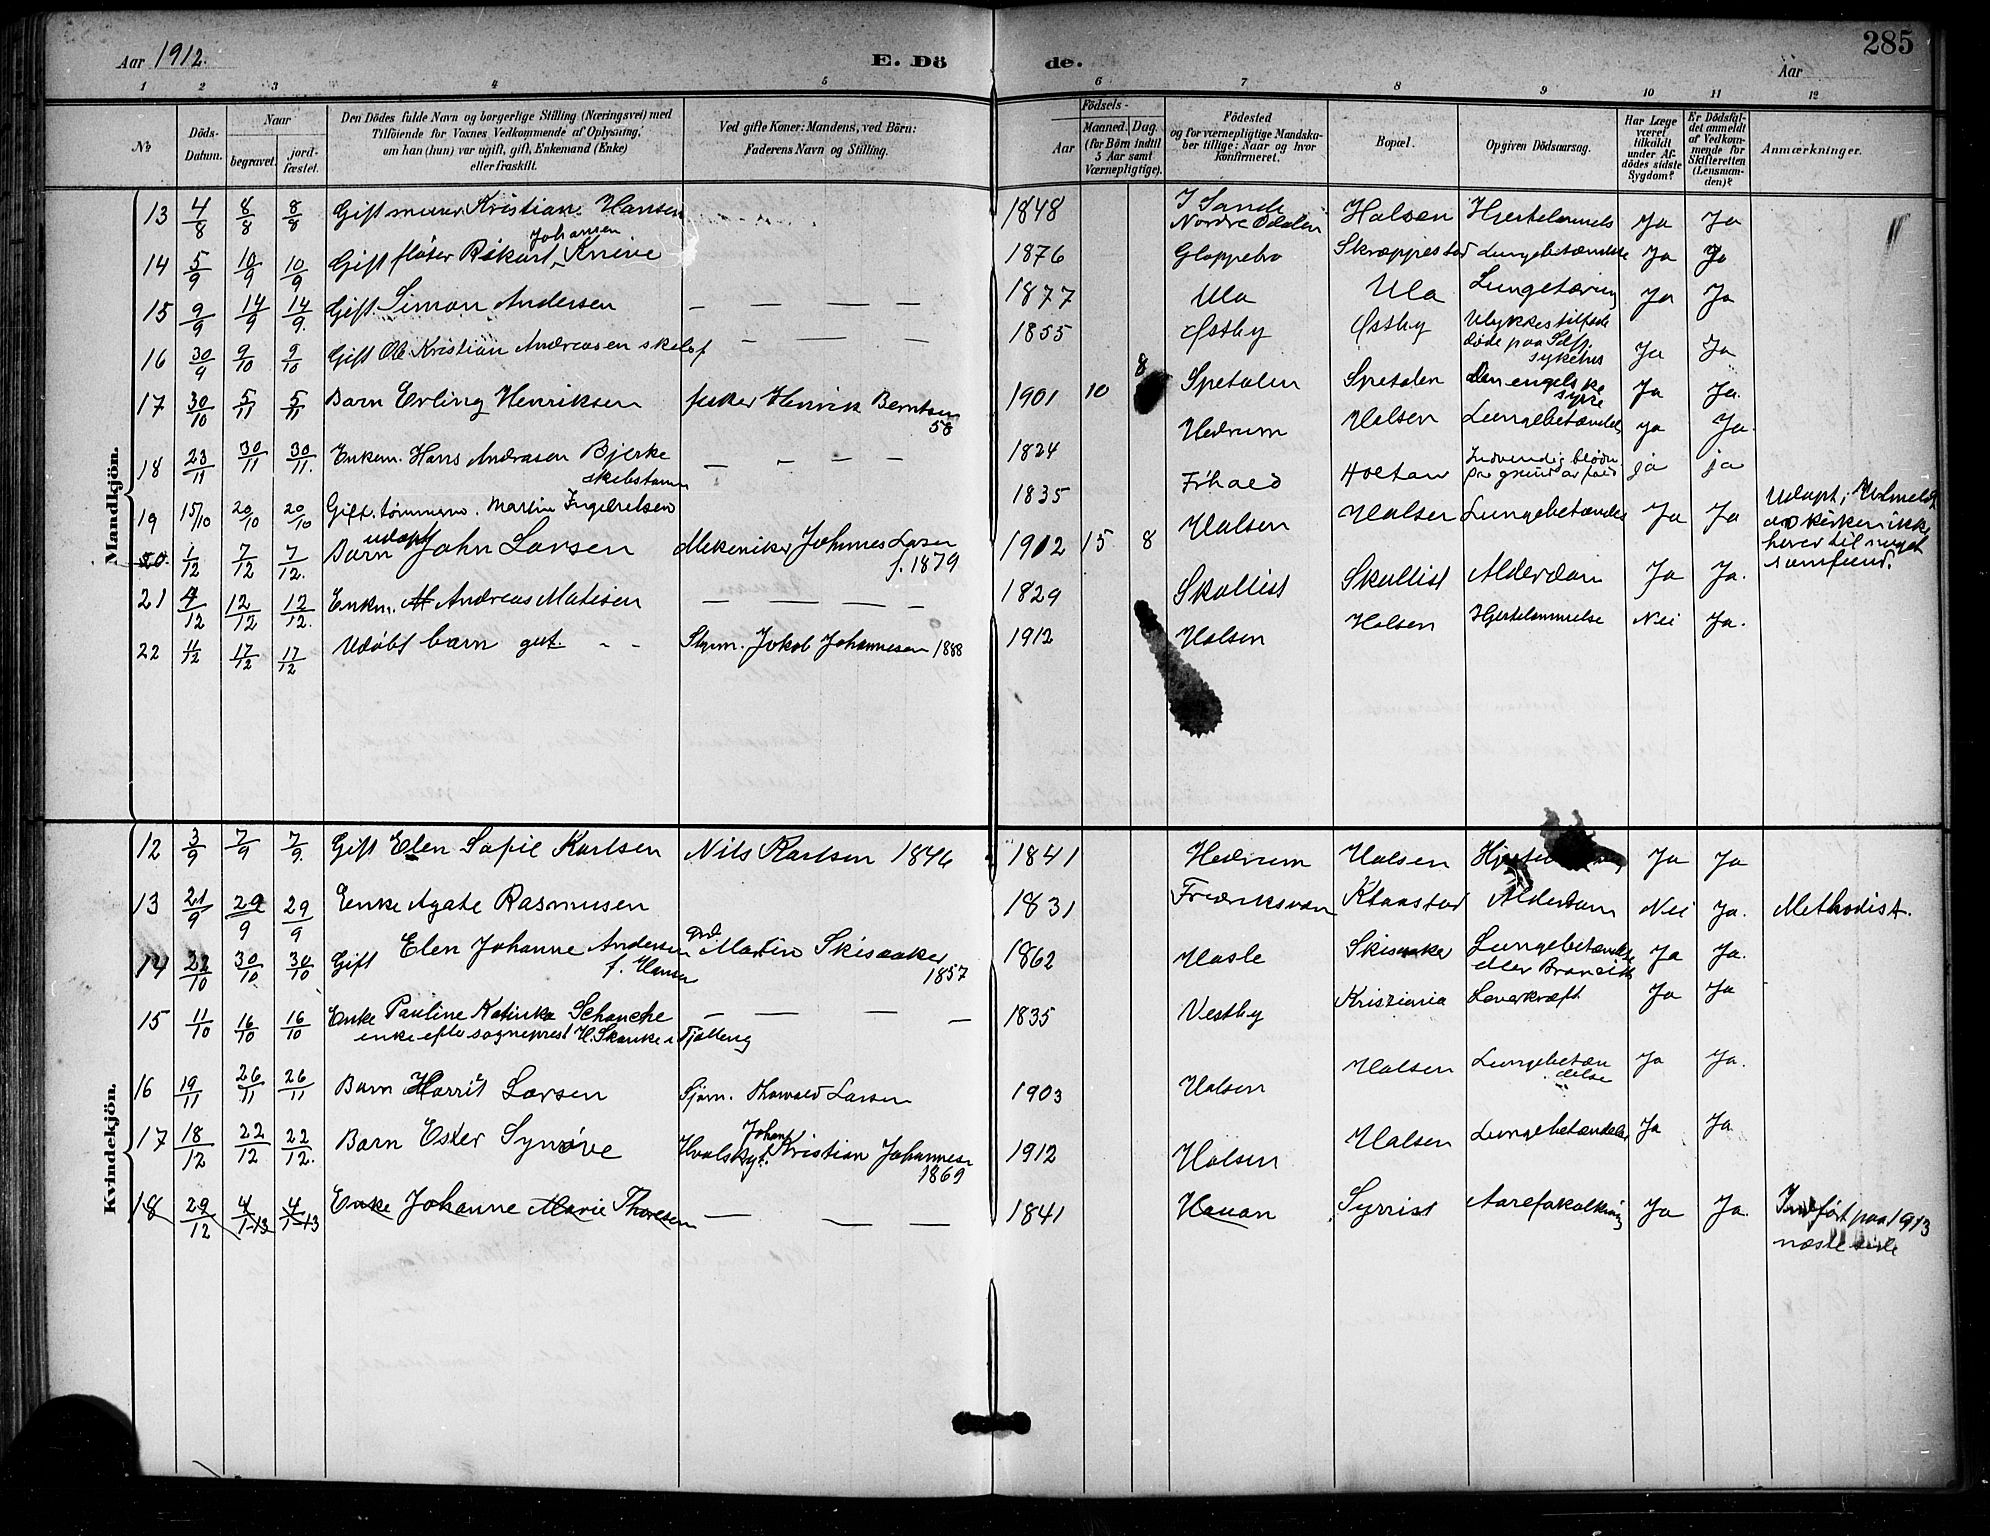 Aar 1912.
E. Dö de.
Aar
285
1 2 3 4 5 6 7 8 9 10 11 12
No
Döds-Datum.
Naar
begravet.
jord-fæstet.
Den Dödes fulde Navn og borgerlige Stilling (Næringsvei) med
Tilföiende for Voxnes Vedkommende af Oplysning,
om han (hun) var ugift, gift, Enkemand (Enke)
eller fraskilt.
Ved gifte Koner: Mandens, ved Börn:
Faderens Navn og Stilling.
Födsels-
Aar
Maaned.
Dag.
(for Börn indtil
5 Aar samt
Værnepligtige).
Födested
og for værnepligtige Mandska-
ber tillige: Naar og hvor
Konfirmeret.
Bopæl.
Opgiven Dödsaarsag.
Har Læge
været
tilkaldt
under Af-
dödes sidste
Sygdom?
Er Dödsfal-
det anmeldt
af Vedkom-
mende for
Skifteretten
(Lensman-
den)?
Anmærkninger.
Mandkjön.
13 4/8 8/8 8/8 Gift murer Kristian Hansen 1848 I Sande Nordre Odalen Halsen Hjertelammels Ja Ja
14 5/9 10/9 10/9 Gift fløter Rikart Johansen Knive 1876 Gloppebro Skræppestad Lungebetændelse Ja Ja
15 9/9 14/9 14/9. Gift Simon Andersen — — — — 1877 Ula Ula Lungetæring Ja Ja
16 30/9 9/10 9/10 Gift Ole Kristian Andreasen — — — 1855 Østby Østby Ulykkestilfælde døde paa sykehus Ja Ja
17 30/10 5/11 5/11 Barn Erling Henriksen fisker Henrik Berntsen 58 1901 10 8 Spetalen Spetalen Den engelske syke Ja Ja.
18 23/11 30/11 30/11. Enkem. Hans Andreasen Bjerke — — — 1824 Hedrum Halsen Lungebetændels Ja Ja.
19 15/10 20/10 20/10 Gift. tømmerm. Martin Ingebretsen 1835 Holtan Indvendig blødn paa grund av fald ja ja
20. 1/12 7/12 7/12. Barn udøpt John Larsen Mekeniker Johnnes Larsen f. 1879 1912 15 8 Halsen Halsen Lungebetændelse Ja Ja Udøpt, Udmeldt av kirken ikke hører til noget samfund.
21 4/12 12/12 12/12. Enkm. Andreas Matisen — — — — 1829 Skallist Skallist Alderdom Ja Ja.
22 11/12 17/12 17/12 Udøbt barn gut - - Styrm. Jokob Johannesen 1888 1912 Halsen Halsen Hjertelammelse Nei Ja.
Kvindekjön.
12 3/9 7/9 7/9. Gift Elen Sofie Karlsen Nils Karlsen 1846 1841 Hedrum Halsen Ja Ja
13 21/9 29/9 29/9 Enke Agate Rasmusen 1831 Fredriksværn Klaastad Alderdom Nei Ja. Methodist.
14 22/10 30/10 30/10 Gift Elen Johanne Andersen f. Hansen Martin Skisaaker 1857 1862 Hasle Skisaaker Lungebetændelse eller Ja Ja.
15 11/10 16/10 16/10 Enke Pauline Katinka Schanche enke efter sogneprest H. Skanke i Tjølling — — — — 1835 Vestby Kristiania Leverkræft Ja Ja
16 19/11 26/11 26/11 Barn Harrit Larsen Sjøm. Thorvald Larsen 1903 Halsen Halsen Lungebetændelse Ja Ja.
17 18/12 22/12 22/12. Barn Ester Synøve Hvalskyt. Johan Kristian Johannesen 1869 1912 Halsen Halsen Lungebetændelse Ja Ja
18 29/12 4/1-13 4/1-13 Enke Johanne Marie Thoresen — — — 1841 Hauan Syrrist Aareforkalkning Ja Ja. Indført paa 1913 næste side